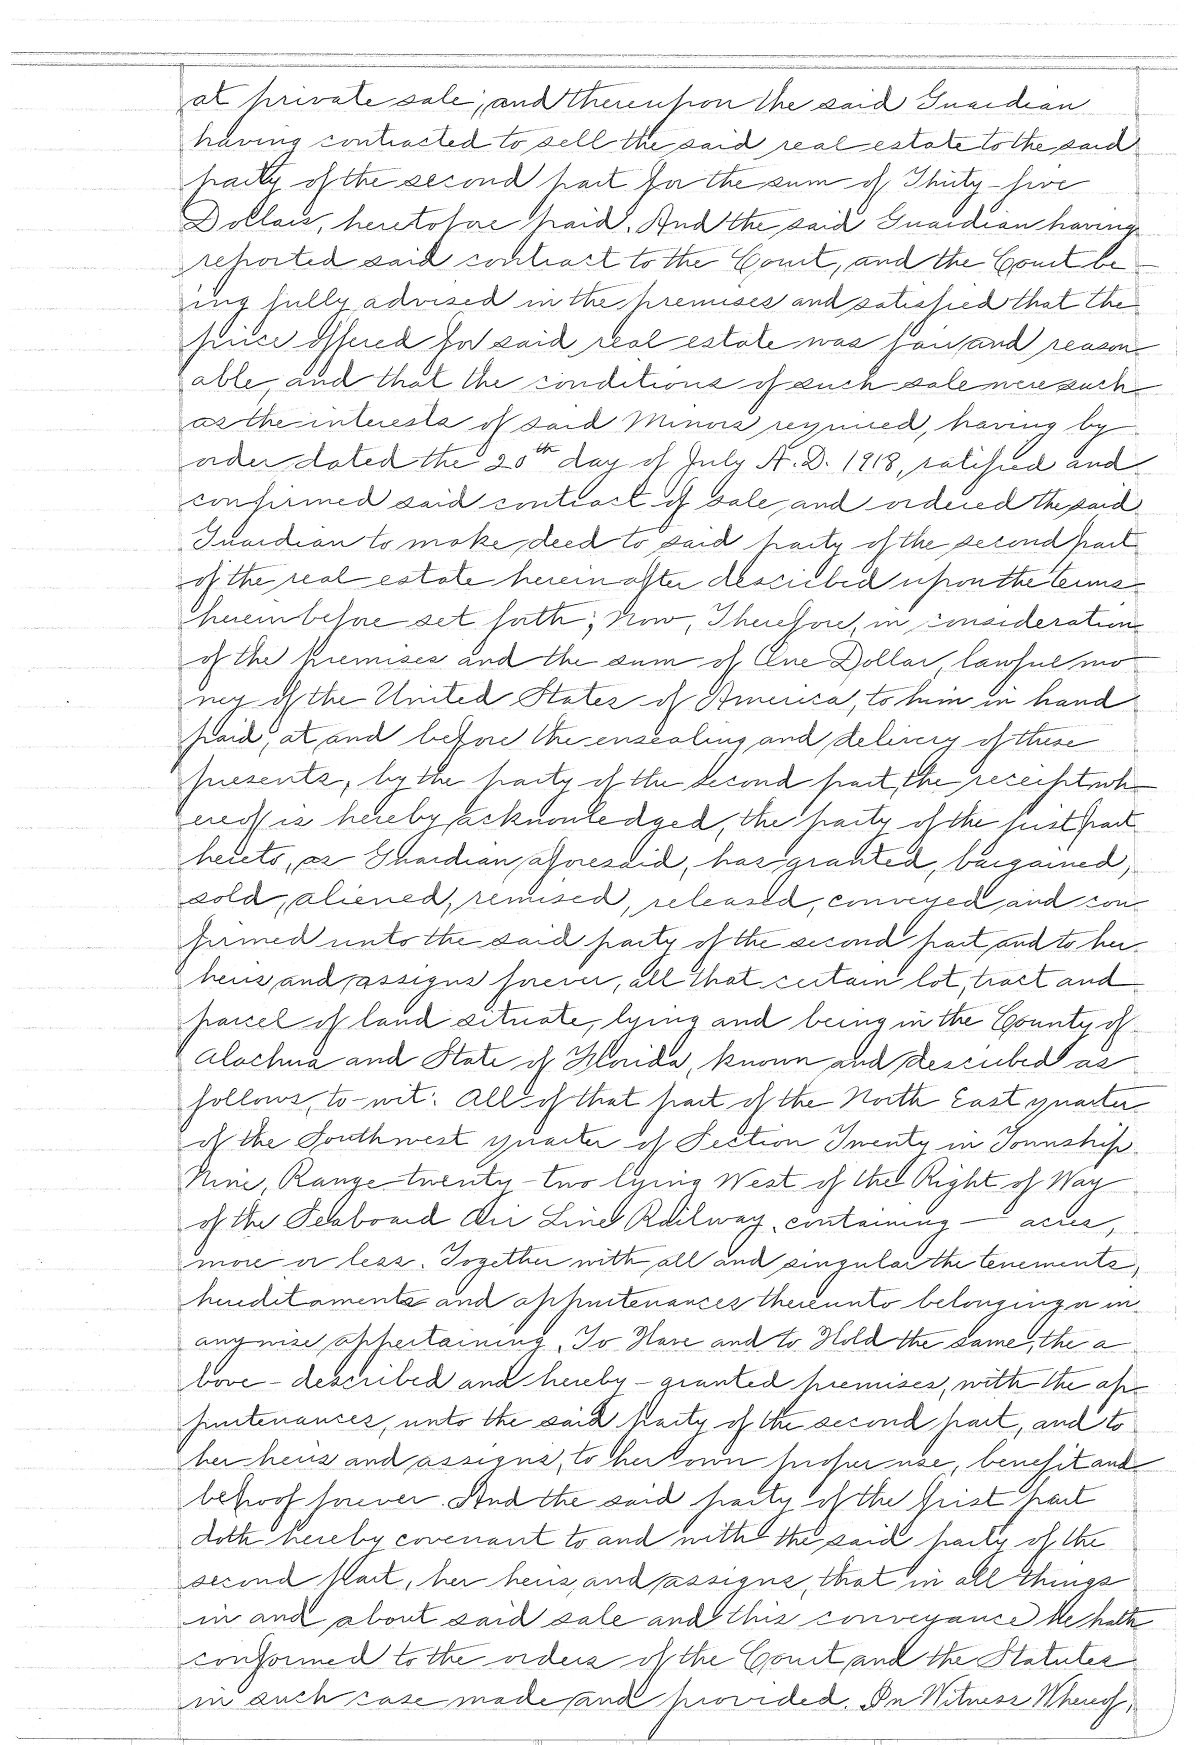 at private sale; and thereupon the said Guardian
having contracted to sell the said real estate to the said
party of the second part for the sum of Thirty-five
Dollars, heretofore paid. And the said Guardian having
reported said contract to the Court, and the Court be-
ing fully advised in the premises and satisfied that the
price offered for said real estate was fair and reason-
able, and that the conditions of such sale were such
as the interests of said Minors required, having by
order dated the 20th day of July A.D. 1918, ratified and
confirmed said contract of sale, and ordered the said
Guardian to make deed to said party of the second part
of the real estate hereinafter described upon the terms
hereinbefore set forth; Now, Therefore, in consideration
of the premises and the sum of One Dollar, lawful mo-
ney of the United States of America, to him in hand
paid, at and before the ensealing and delivery of these
presents, by the party of the second part, the receipt wh-
ereof is hereby acknowledged, the party of the first part
hereto, as Guardian aforesaid, has granted, bargained,
sold, aliened, remised, released, conveyed and con-
firmed unto the said party of the second part, and to her
heirs and assigns forever, all that certain lot, tract and
parcel of land situate, lying and being in the County of
Alachua and State of Florida, known and described as
follows, to-wit: All of that part of the North East quarter
of the Southwest quarter of Section Twenty in Township
Nine, Range twenty-two lying West of the Right of Way
of the Seaboard Air Line Railway, containing — acres,
more or less. Together with all and singular the tenements,
hereditaments and appurtenances thereunto belonging or in
anywise appertaining. To Have and to Hold the same, the a-
bove-described and hereby-granted premises, with the ap-
purtenances, unto the said party of the second part, and to
her heirs and assigns, to her own proper use, benefit and
behoof forever. And the said party of the first part
doth hereby covenant to and with the said party of the
second part, her heirs, and assigns, that in all things
in and about said sale and this conveyance he hath
conformed to the orders of the Court and the Statutes
in such case made and provided. In Witness Whereof,